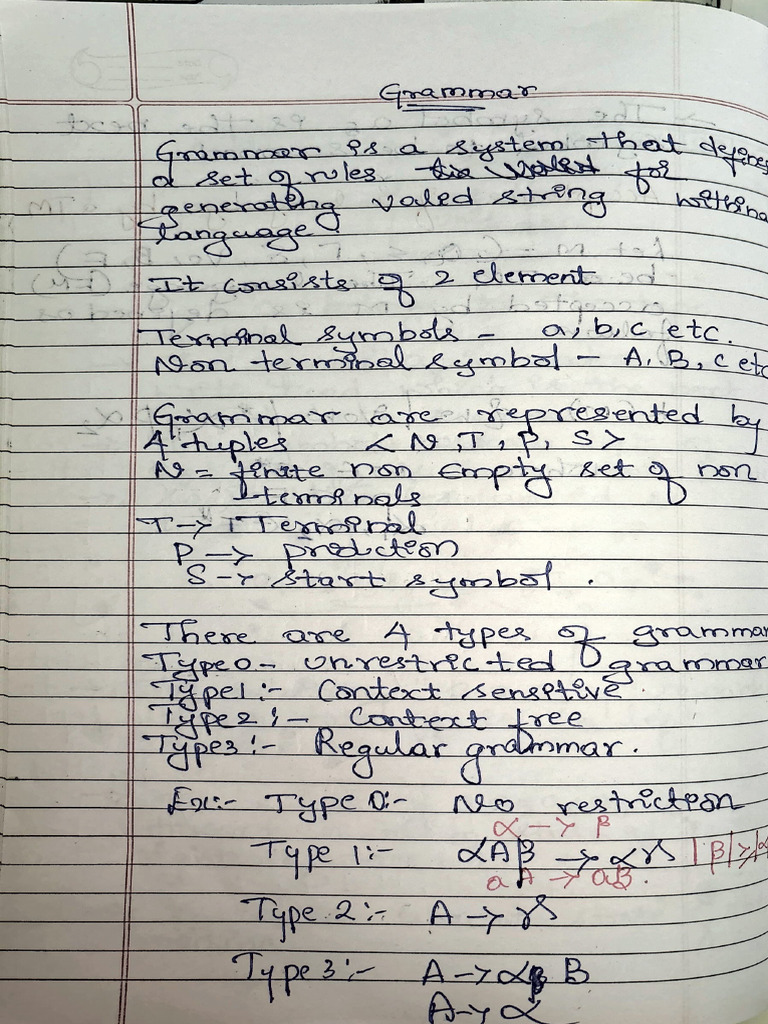 Grammar
Grammar is a system that defines
a set of rules for
generating valed string within a
language.
It consists of 2 element
Terminal symbols - a, b, c etc.
Non terminal symbol - A, B, C etc
Grammar are represented by
4 tuples < N, T, P, S >
N = finite non Empty set of non
terminals
T → Terminal
P → prodction
S → start symbol .
There are 4 types of grammar
Type 0 - unrestricted grammar
Type 1 :- Context sensitive.
Type 2 :- Context free
Type 3 :- Regular grammar.
Ex:- Type 0:- No restriction
α → β
Type 1:- αAβ → αγβ |β| ≥ |α
aA → aB.
Type 2:- A → γ
Type 3:- A → α B
A → α